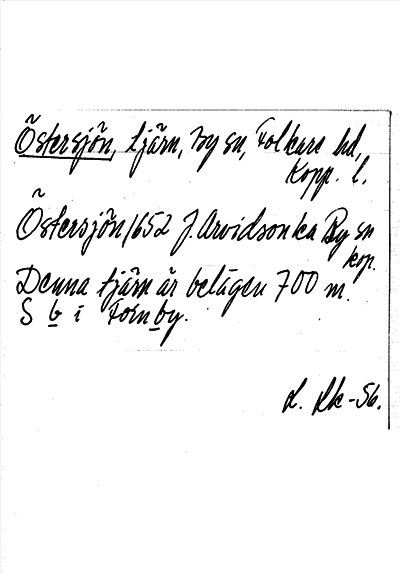 Östersjön, tjärn, By sn, Folkare hd,
Kopp. l.
Östersjön 1652 J. Arvidson ka By sn
kop.
Denna tjärn är belägen 700 m.
S b i Fornby.
L. Rk-56.